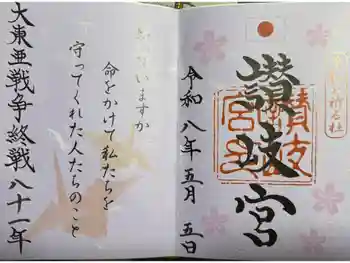 讃岐宮
令和八年五月五日
知っていますか
命をかけて私たちを
守ってくれた人たちのこと
大東亜戦争終戦八十一年